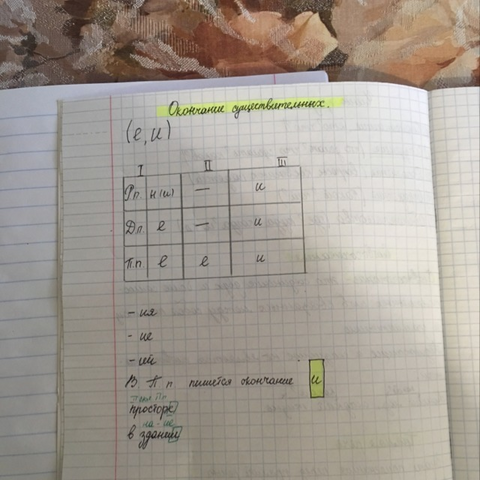 Окончание существительных.
(е, и)
I II III
Р.п. и(ы) — и
Д.п. е — и
П.п. е е и
- ия
- ие
- ий
В П.п пишется окончание и
просторе
на -ие
в здании